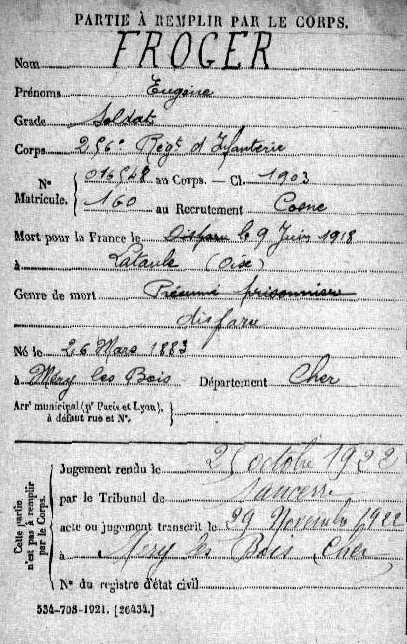 PARTIE À REMPLIR PAR LE CORPS.
Nom FROGER
Prénoms Eugène
Grade Soldat
Corps 256e Regt d'Infanterie
Nº Matricule. { 016548 au Corps. — Cl. 1903
160 au Recrutement Cosne
Mort pour la France le Disparu le 9 Juin 1918
à Lataule (Oise)
Genre de mort Présumé prisonnier
disparu
Né le 26 Mars 1883
à Méry les Bois Département Cher
Arrt municipal (pr Paris et Lyon), à défaut rue et Nº. }
Cette partie n'est pas à remplir par le Corps.
Jugement rendu le 25 octobre 1922
par le Tribunal de Sancerre
acte ou jugement transcrit le 29 Novembre 1922
à Méry les Bois Cher
Nº du registre d'état civil
534-708-1921. [26434.]